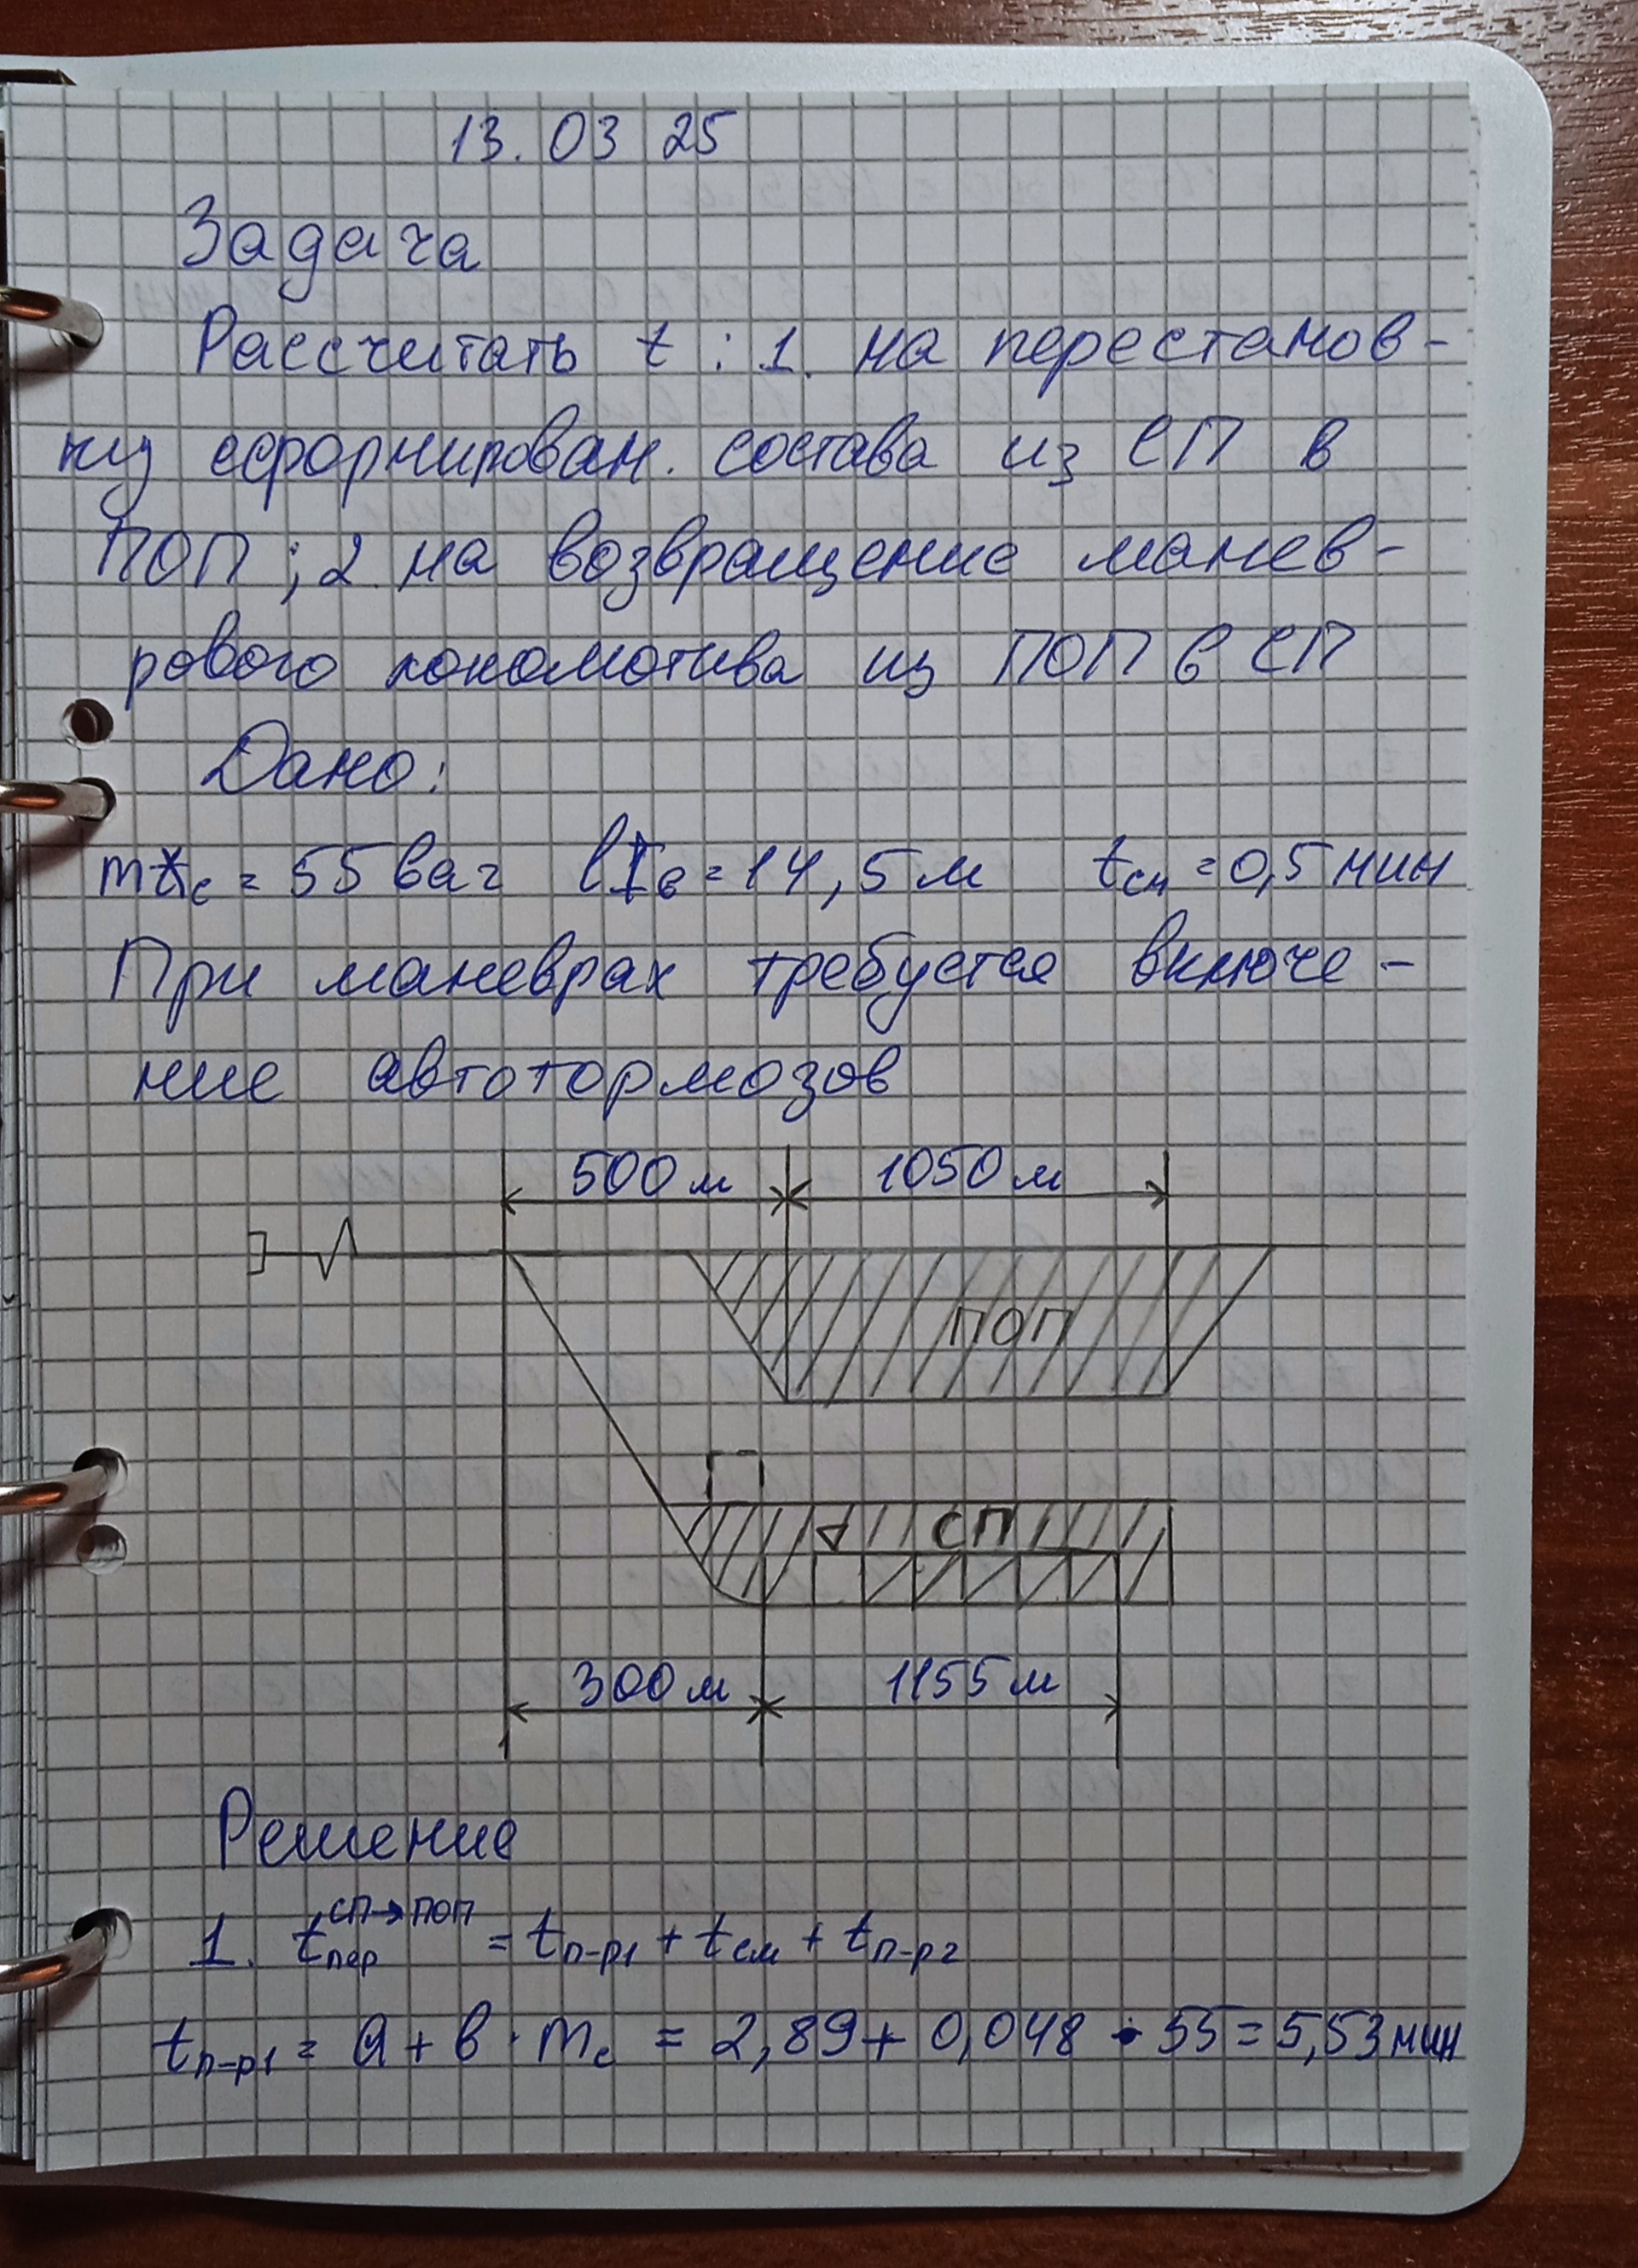 13. 03 25
Задача
Рассчитать t : 1. на перестанов-
ку сформирован. состава из СП в
ПОП ; 2. на возвращение манев-
рового локомотива из ПОП в СП
Дано:
m с = 55 ваг l в = 14,5 м tсм = 0,5 мин
При маневрах требуется включе-
ние автотормозов
500 м 1050 м
ПОП
СП
300 м 1155 м
Решение
1. tпер СП→ПОП = tп-р1 + tсм + tп-р2
tп-р1 = a + в · mс = 2,89 + 0,048 · 55 = 5,53 мин